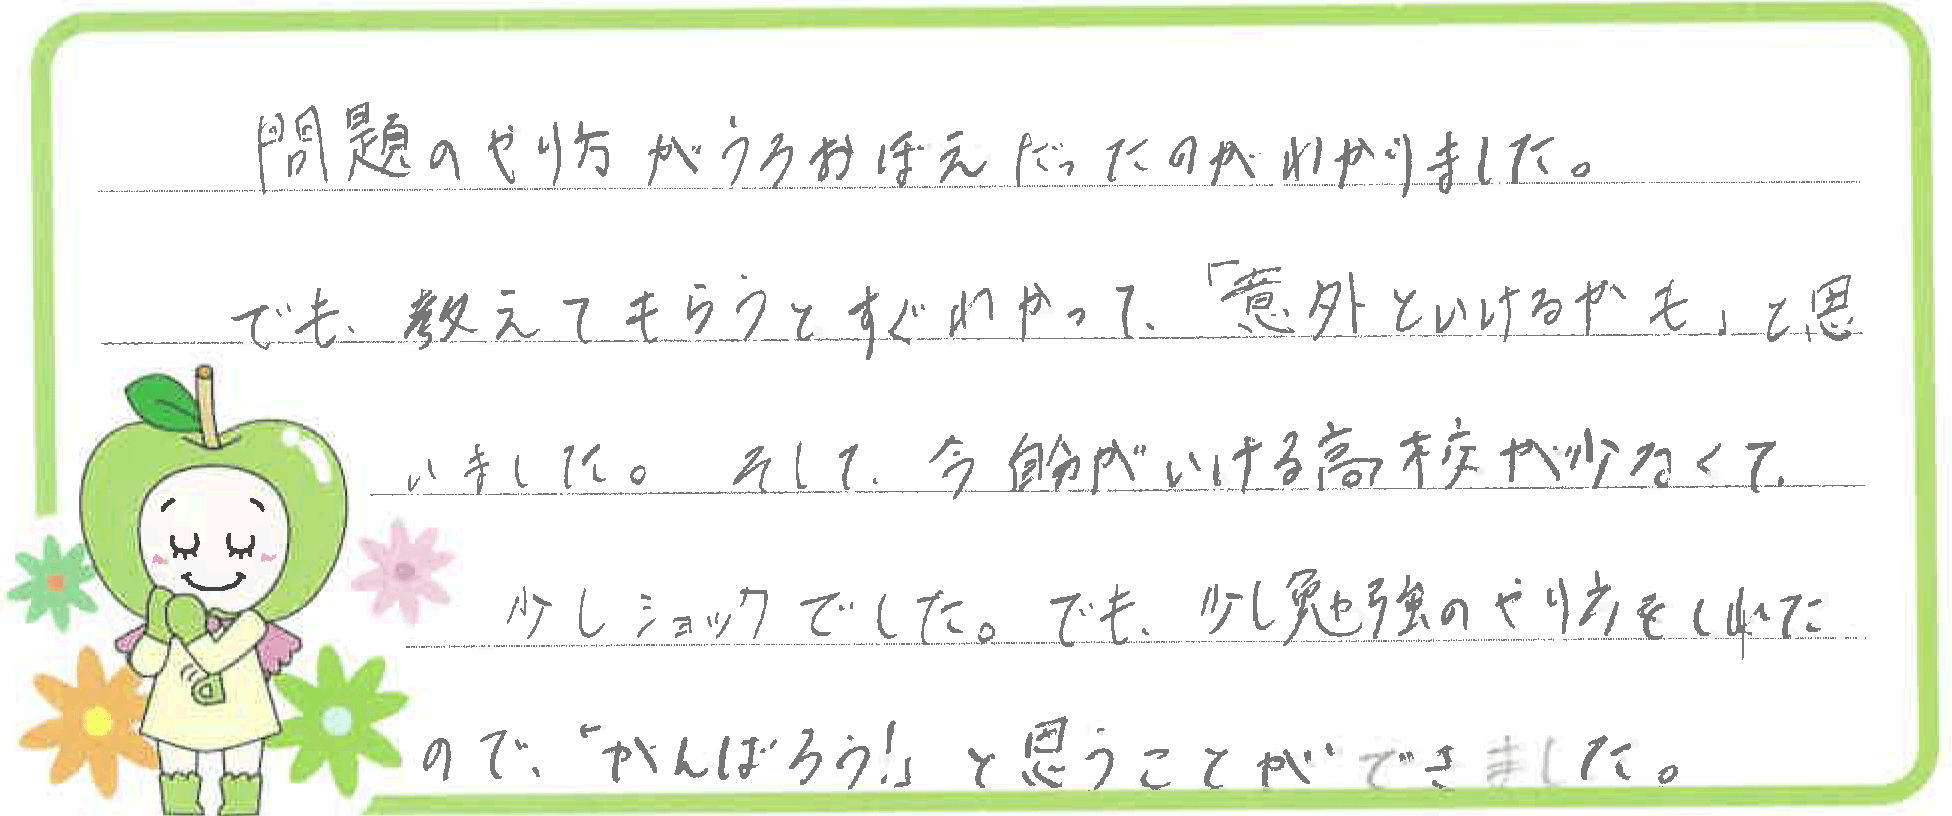 問題のやり方がうろおぼえだったのがわかりました。
でも、教えてもらうとすぐわかって、「意外といけるかも」と思
いました。そして、今自分がいける高校が少なくて、
少しショックでした。でも、少し勉強のやり方をしれた
ので、「がんばろう!」と思うことができました。